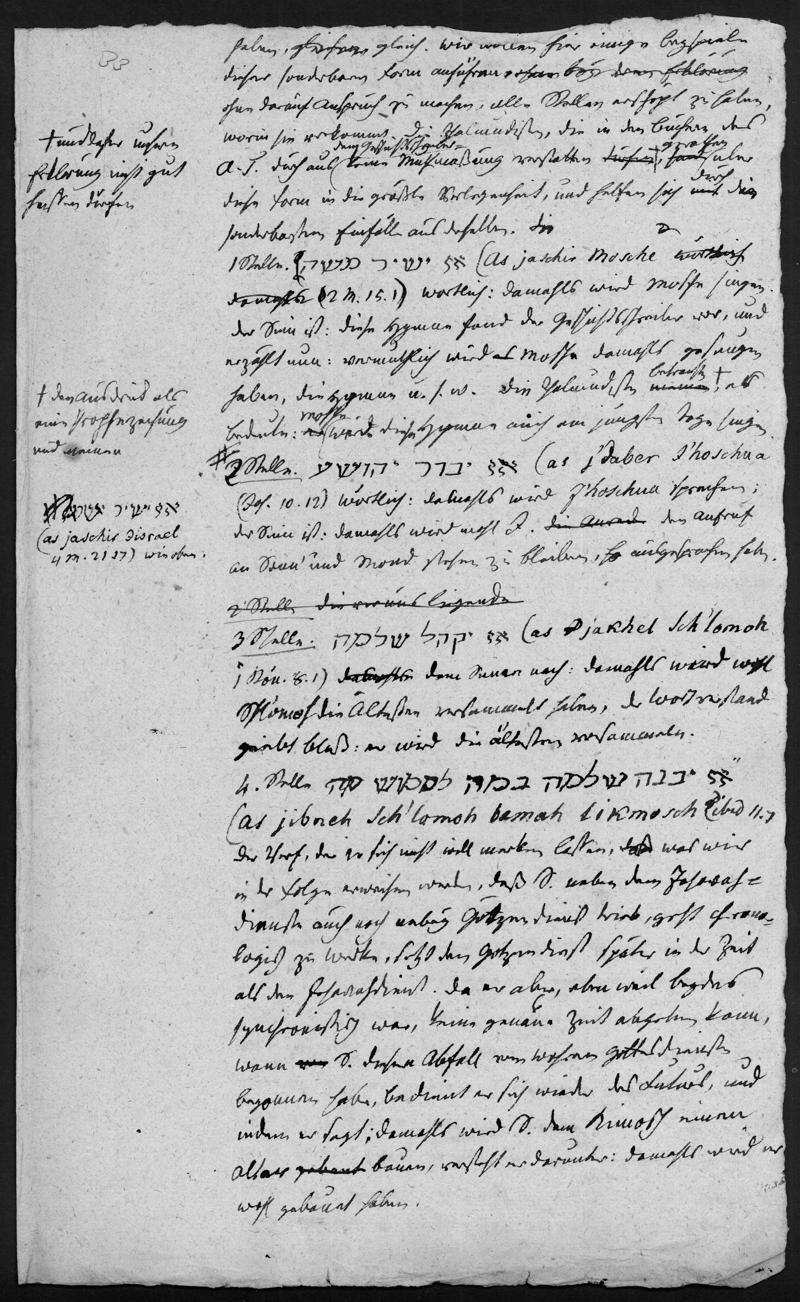 haben, gleich. wir wollen hier einige beyspiele
dieser sonderbaren Form anführen ohne bey deren Erklärung
ohne darauf Anspruch zu machen, alle Stellen erschöpft zu haben,
worin sie vorkommt. die Thalmudisten, die in den Büchern des
dem Geschichtschreiber gerathen
A. T. durchaus keine Muthmaßung verstatten über
durch
diese Form in die größte Verlegenheit, und helfen sich mit die
sonderbarsten Einfälle aus derselben. die
1 Stelle. אז ישיר משה (As jaschir Mosche wörtlich
damahls (2 M. 15. 1) wörtlich: damahls wird Mosche singen.
der Sinn ist: diese Hymne fand der Geschichtsschreiber vor, und
erzählt nun: vermuthlich wird es Mosche damahls gesungen
haben, die Hymne u. s. w. die Thalmudisten meinen betrachten †, als
bedeute: Mosche werde diese Hymne auch am jüngsten Tage singen.
# 2 Stelle. אז ידבר יהושע (as j'daber J'hoschua
(Jos. 10. 12) wörtlich: damahls wird J'hoschua sprechen;
der Sinn ist: damahls wird wohl J. die Anrede den Aufruf
an Sonn' und Mond stehen zu bleiben, so ausgesprochen haben.
2 Stelle die vor uns liegende
3 Stelle. אז יקהל שלמה (as jakhel Sch'lomoh
1 Kön. 8. 1) damahls dem Sinne nach: damahls wird wohl
Sch'lomoh die Ältesten versammelt haben, der Wortverstand
giebt bloß: er wird die ältesten versammeln.
4. Stelle אז יבנה שלמה במה לכמוש
(as jibneh Sch'lomoh bamah likmosch (ibid 11. 7
der Verf., der es sich nicht will merken lassen, daß was wir
in der Folge erweisen werden, daß S. neben dem Jehovah=
dienste auch noch nebenbey Götzendienst trieb, geht chrono=
logisch zu Werke, setzt den Götzendienst später in der Zeit
als den Jehovahdienst. da er aber, eben weil beydes
synchronistisch war, keine genaue Zeit abgeben kann,
wann S. diesen Abfall vom wahren Gottesdienste
begonnen habe, bedient er sich wieder des Futurs, und
indem er sagt; damahls wird S. dem Kimosch einen
Altar gebaut bauen, versteht er darunter: damahls wird er
wohl gebauet haben.
† und daher unsere
Erklärung nicht gut
heissen dürfen
† den Ausdruck als
eine Prophezeihung
und meinen
# אז ישיר ישראל
(as jaschir Jisrael
4 M. 21 17) wie oben.